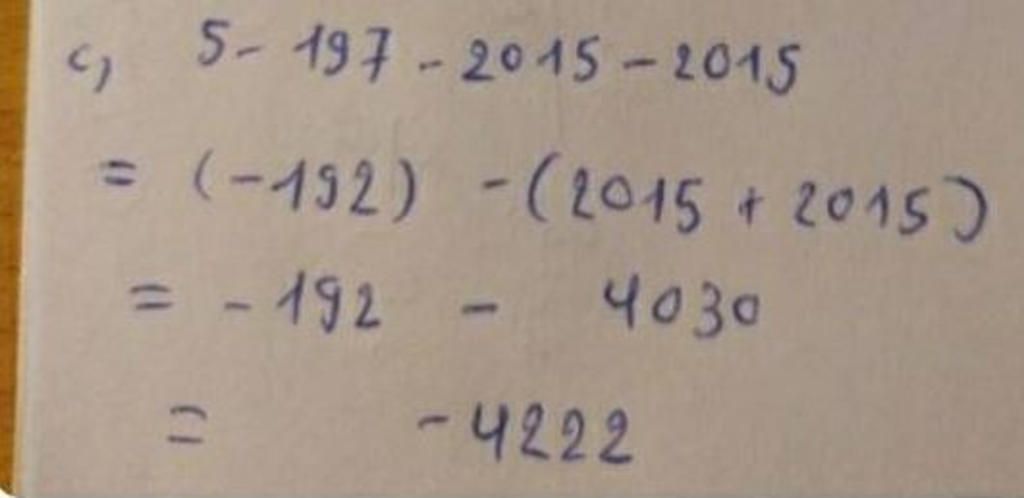 c, 5 - 197 - 2015 - 2015
= (-192) - (2015 + 2015)
= - 192 - 4030
= -4222